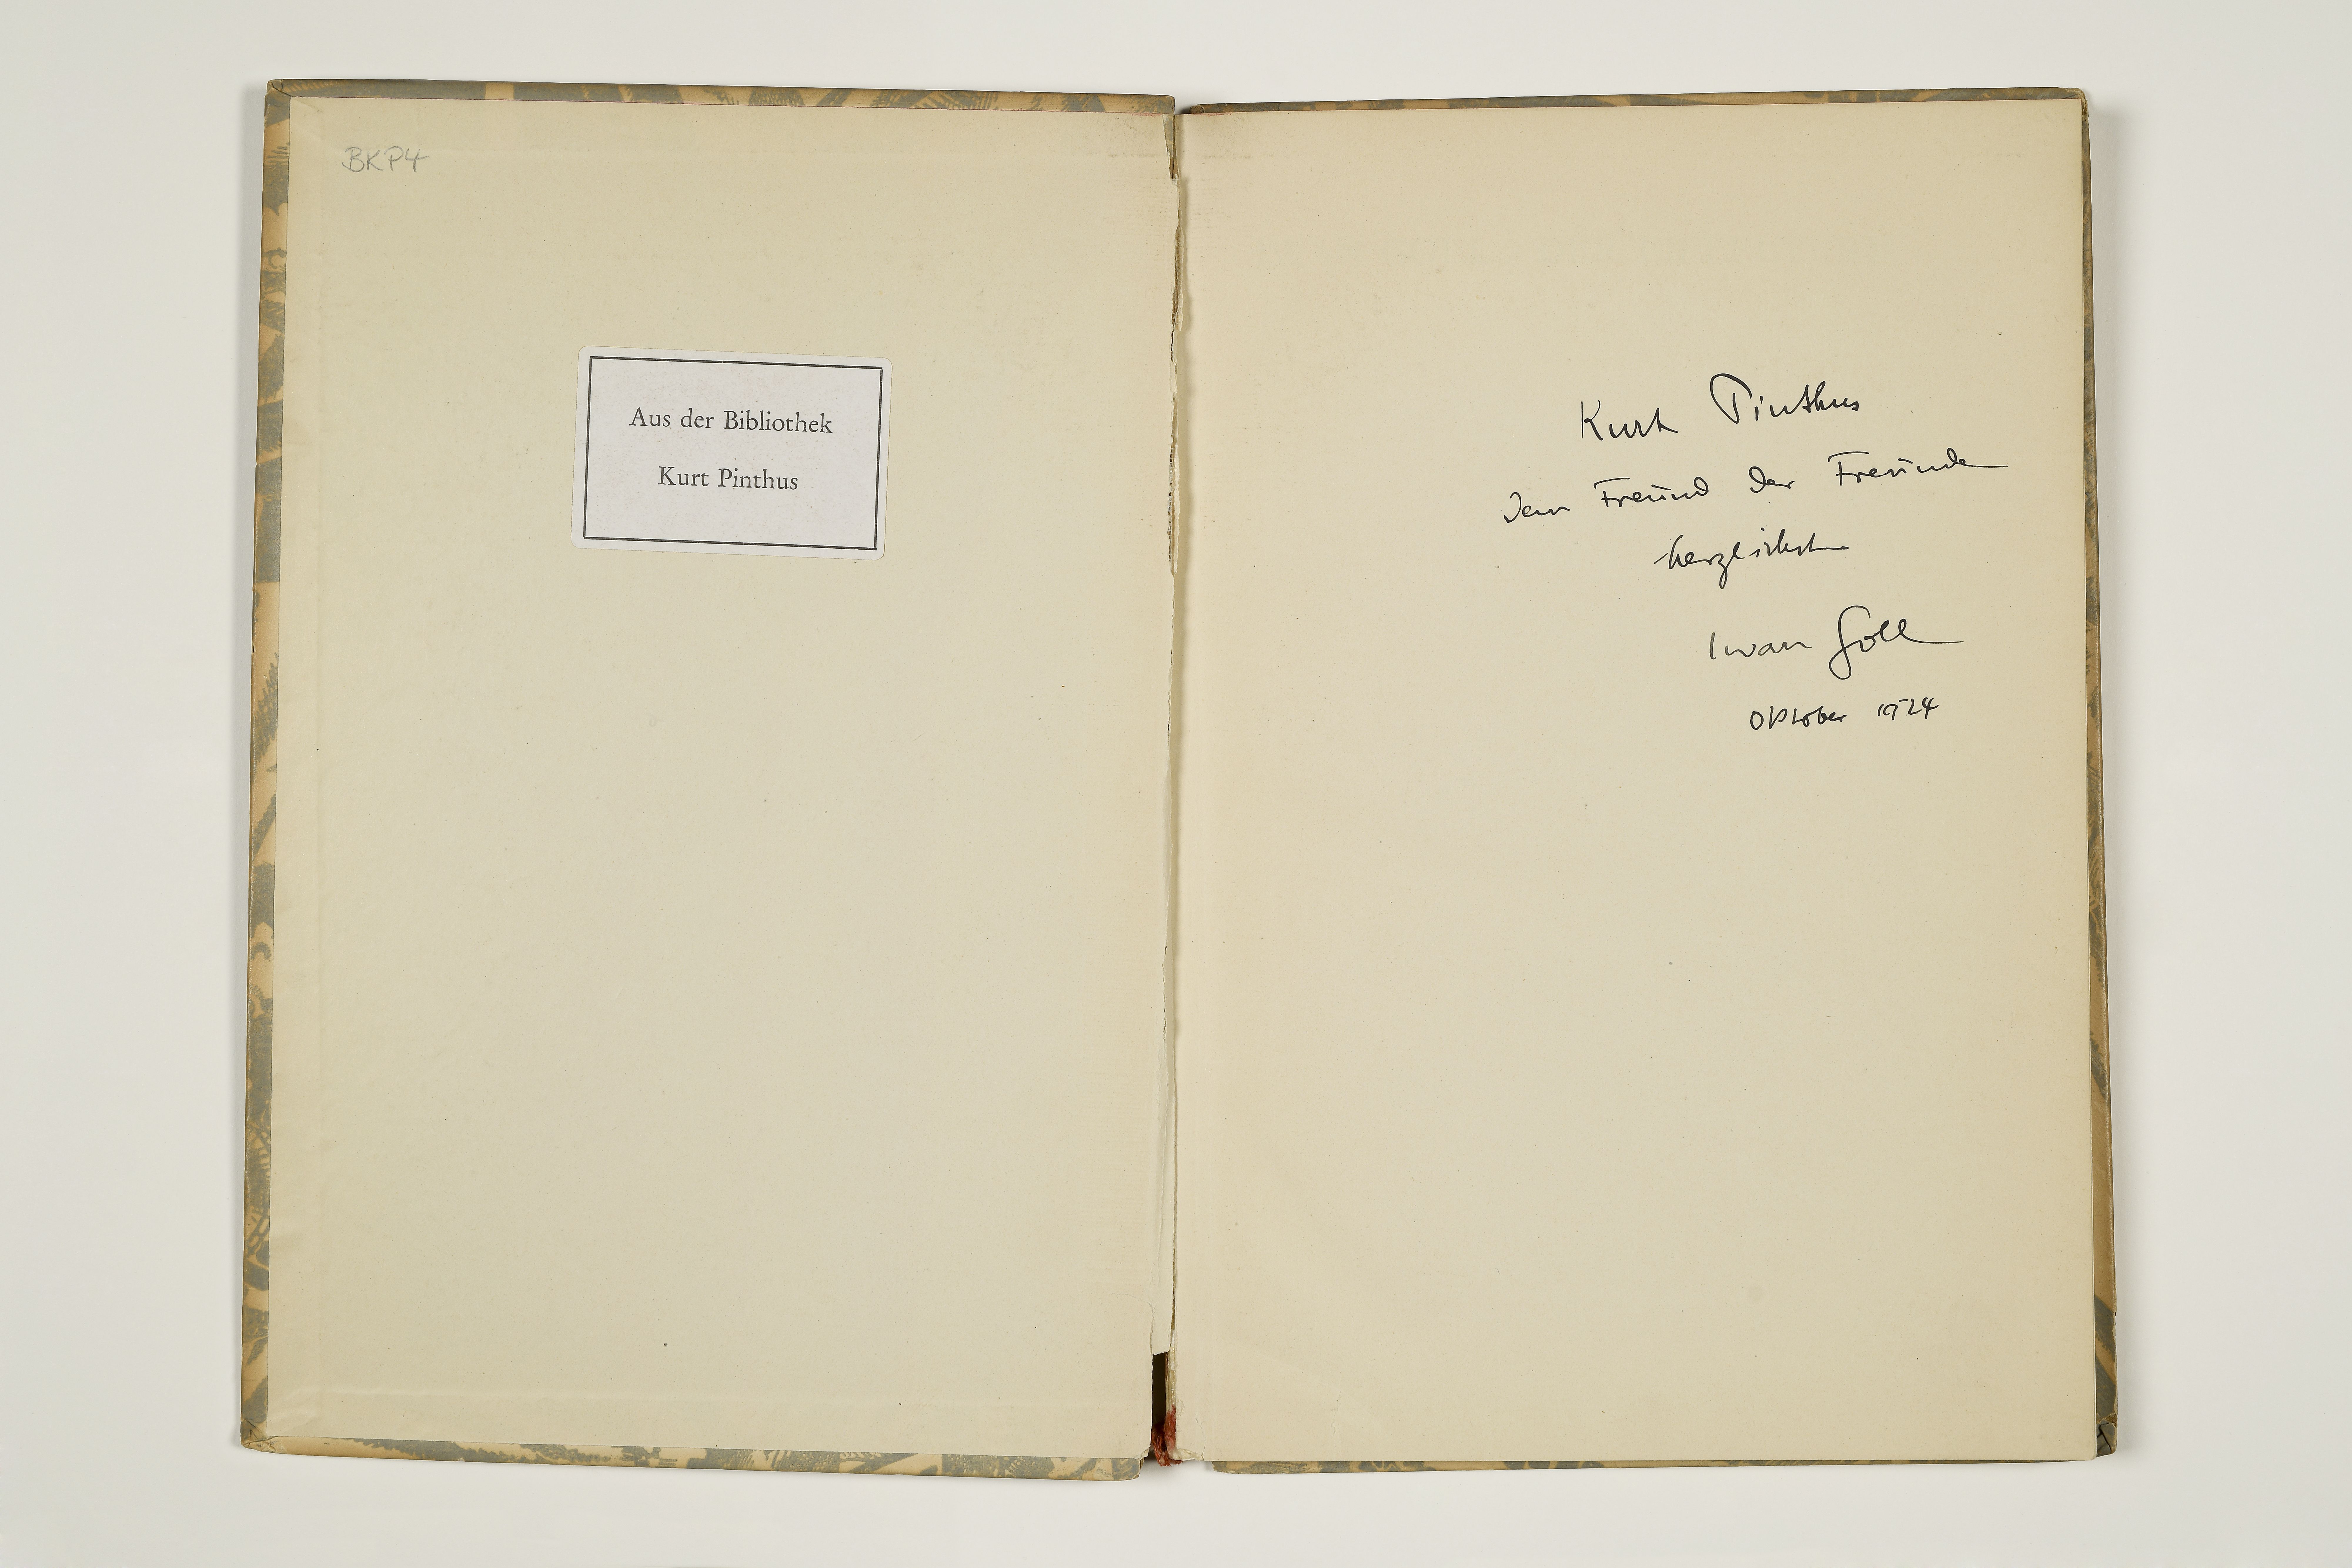 BKP4
Aus der Bibliothek
Kurt Pinthus
Kurt Pinthus
dem Freund der Freunde
herzlichst
Iwan Goll
Oktober 1924